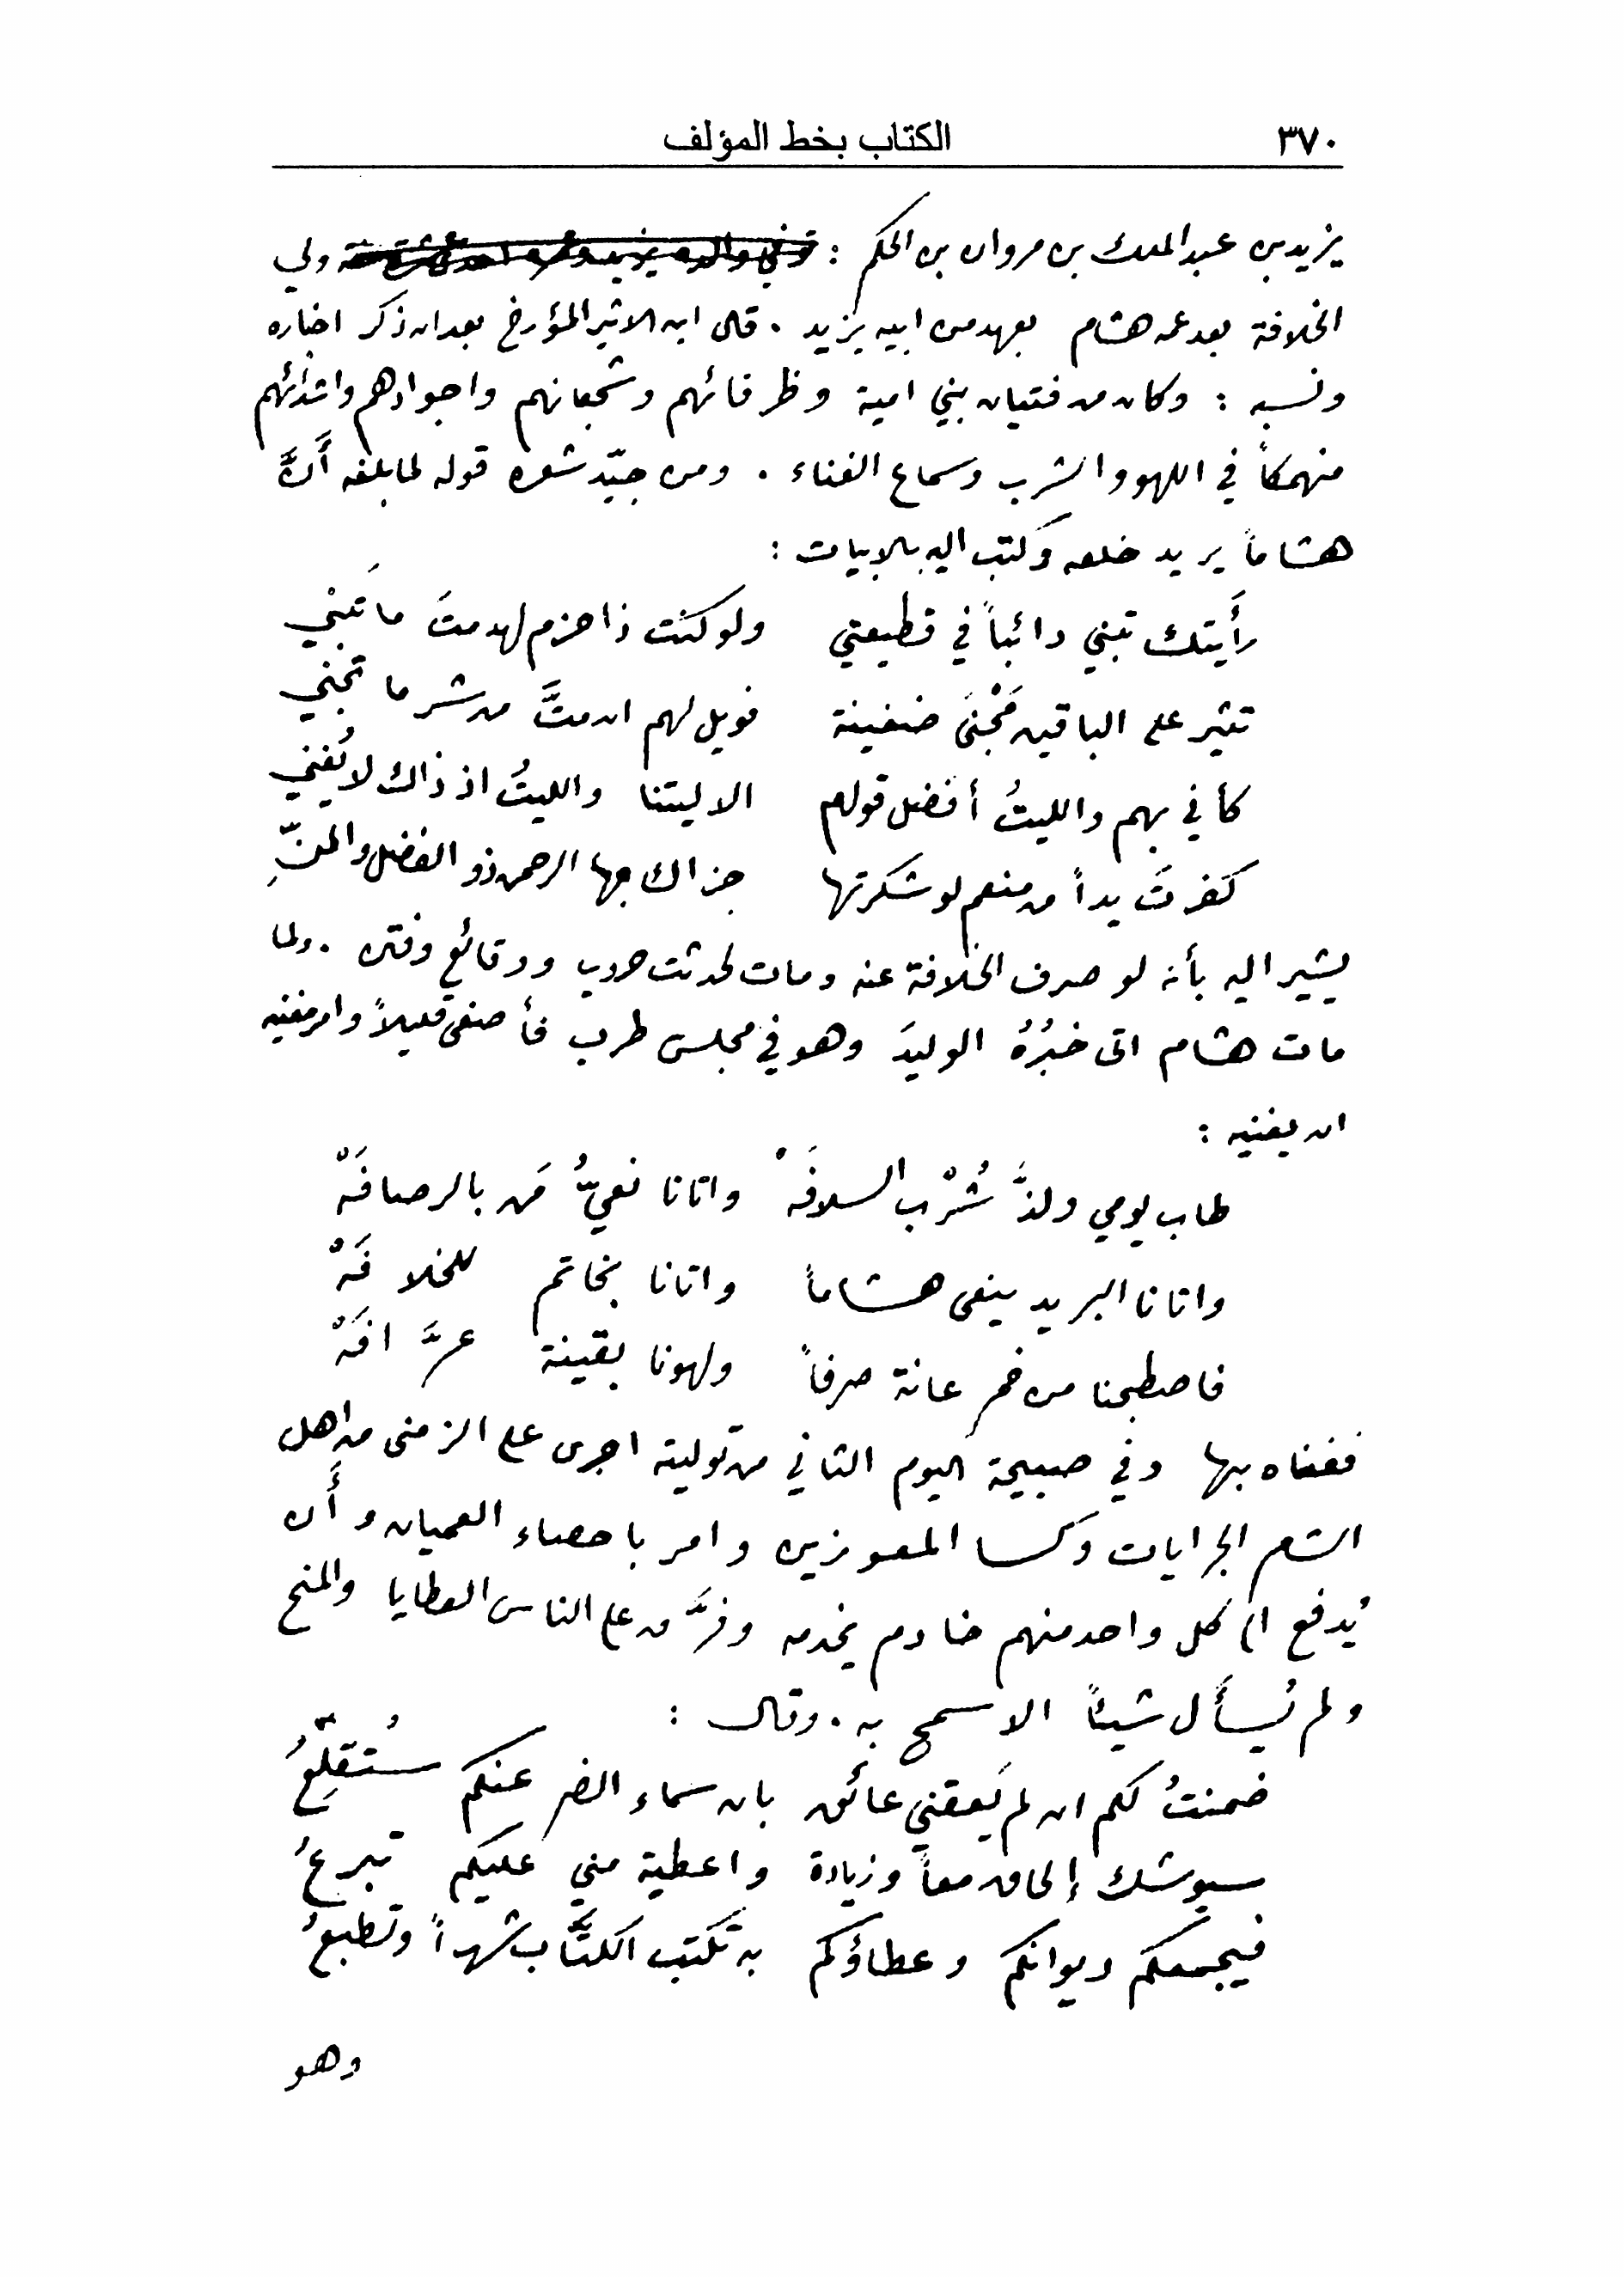 ٣٧٠ الكتاب بخط المؤلف
يزيد بن عبد الملك بن مروان بن الحكم : ولي
الخلافة بعد عمه هشام بعهد من ابيه يزيد . قال ابن الاثير المؤرخ بعد ان ذكر اخباره
ونسبه : وكان من فتيان بني امية وظرفائهم وشجعانهم واجوادهم واشدائهم
منهمكاً في اللهو والشرب وسماع الغناء . ومن جيّد شعره قوله لما بلغه أَنَّ
هشاماً يريد خلعه وكتب اليه بالابيات :
رأَيتك تبني دائباً في قطيعتي ولو كنت ذا حزم لهدمتَ ما تَبنْي
تثير على الباقين مَجْنىَ ضغينة فويل لهم ان متَّ من شر ما تجني
كأني بهم والليتُ أفضل قولهم الا ليتنا والليتُ اذ ذاك لا يُغني
كفرتَ يداً من منعم لو شكرتها جزاك بها الرحمن ذو الفضل والمنّ
يشير اليه بأنه لو صرف الخلافة عنه ومات لحدثت حروب ووقائع وفتن . ولما
مات هشام اتى خبُرُهُ الوليدَ وهو في مجلس طرب فأصغى قليلاً وامر مغنيه
ان يغنيه :
طاب يومي ولذَّ شُرْب السلافَهْ واتانا نعيُّ مَن بالرصافَهْ
واتانا البريد ينعى هشاماً واتانا بخاتم للخلافَهْ
فاصطبحنا من خمر عانة صرفاً ولهونا بقينة عرَّافَهْ
فغناه بها وفي صبيحة اليوم الثاني من توليته اجرى على الزمنى من اهل
الشام الجرايات وكسا المعوزين وامر باحصاء العميان وأَن
يُدفع الى كل واحد منهم خادم يخدمه وفرَّق على الناس العطايا والمنح
ولم يُسأَل شيئاً الا سمح به . وقال :
ضمنتُ لكم ان لم يَعقني عائق بان سماء الضر عنكم ستُقلِعُ
سيوشك إلحاق معاً وزيادة واعطية مني عليكم تبرعُ
فيجمعكم ديوانكم وعطاؤكم به تكتب الكتَّاب شهراً وتطبعُ
وهو